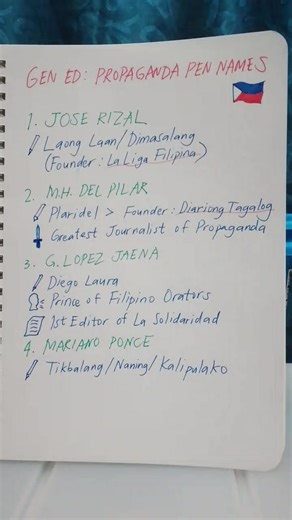 GEN ED: PROPAGANDA PEN NAMES
1. JOSE RIZAL
Laong Laan/Dimasalang
(Founder: La Liga Filipina)
2. M.H. DEL PILAR
Plaridel > Founder: Diariong Tagalog
Greatest Journalist of Propaganda
3. G. LOPEZ JAENA
Diego Laura
Prince of Filipino Orators
1st Editor of La Solidaridad
4. MARIANO PONCE
Tikbalang/Naning/Kalipulako